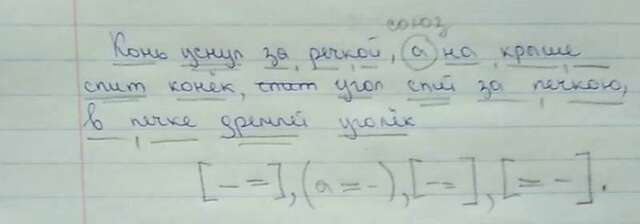 союз
Конь уснул за речкой, а на крыше
спит конёк, спит угол спит за печкою,
в печке дремлет уголёк
[— =], (а = —), [— =], [= —].